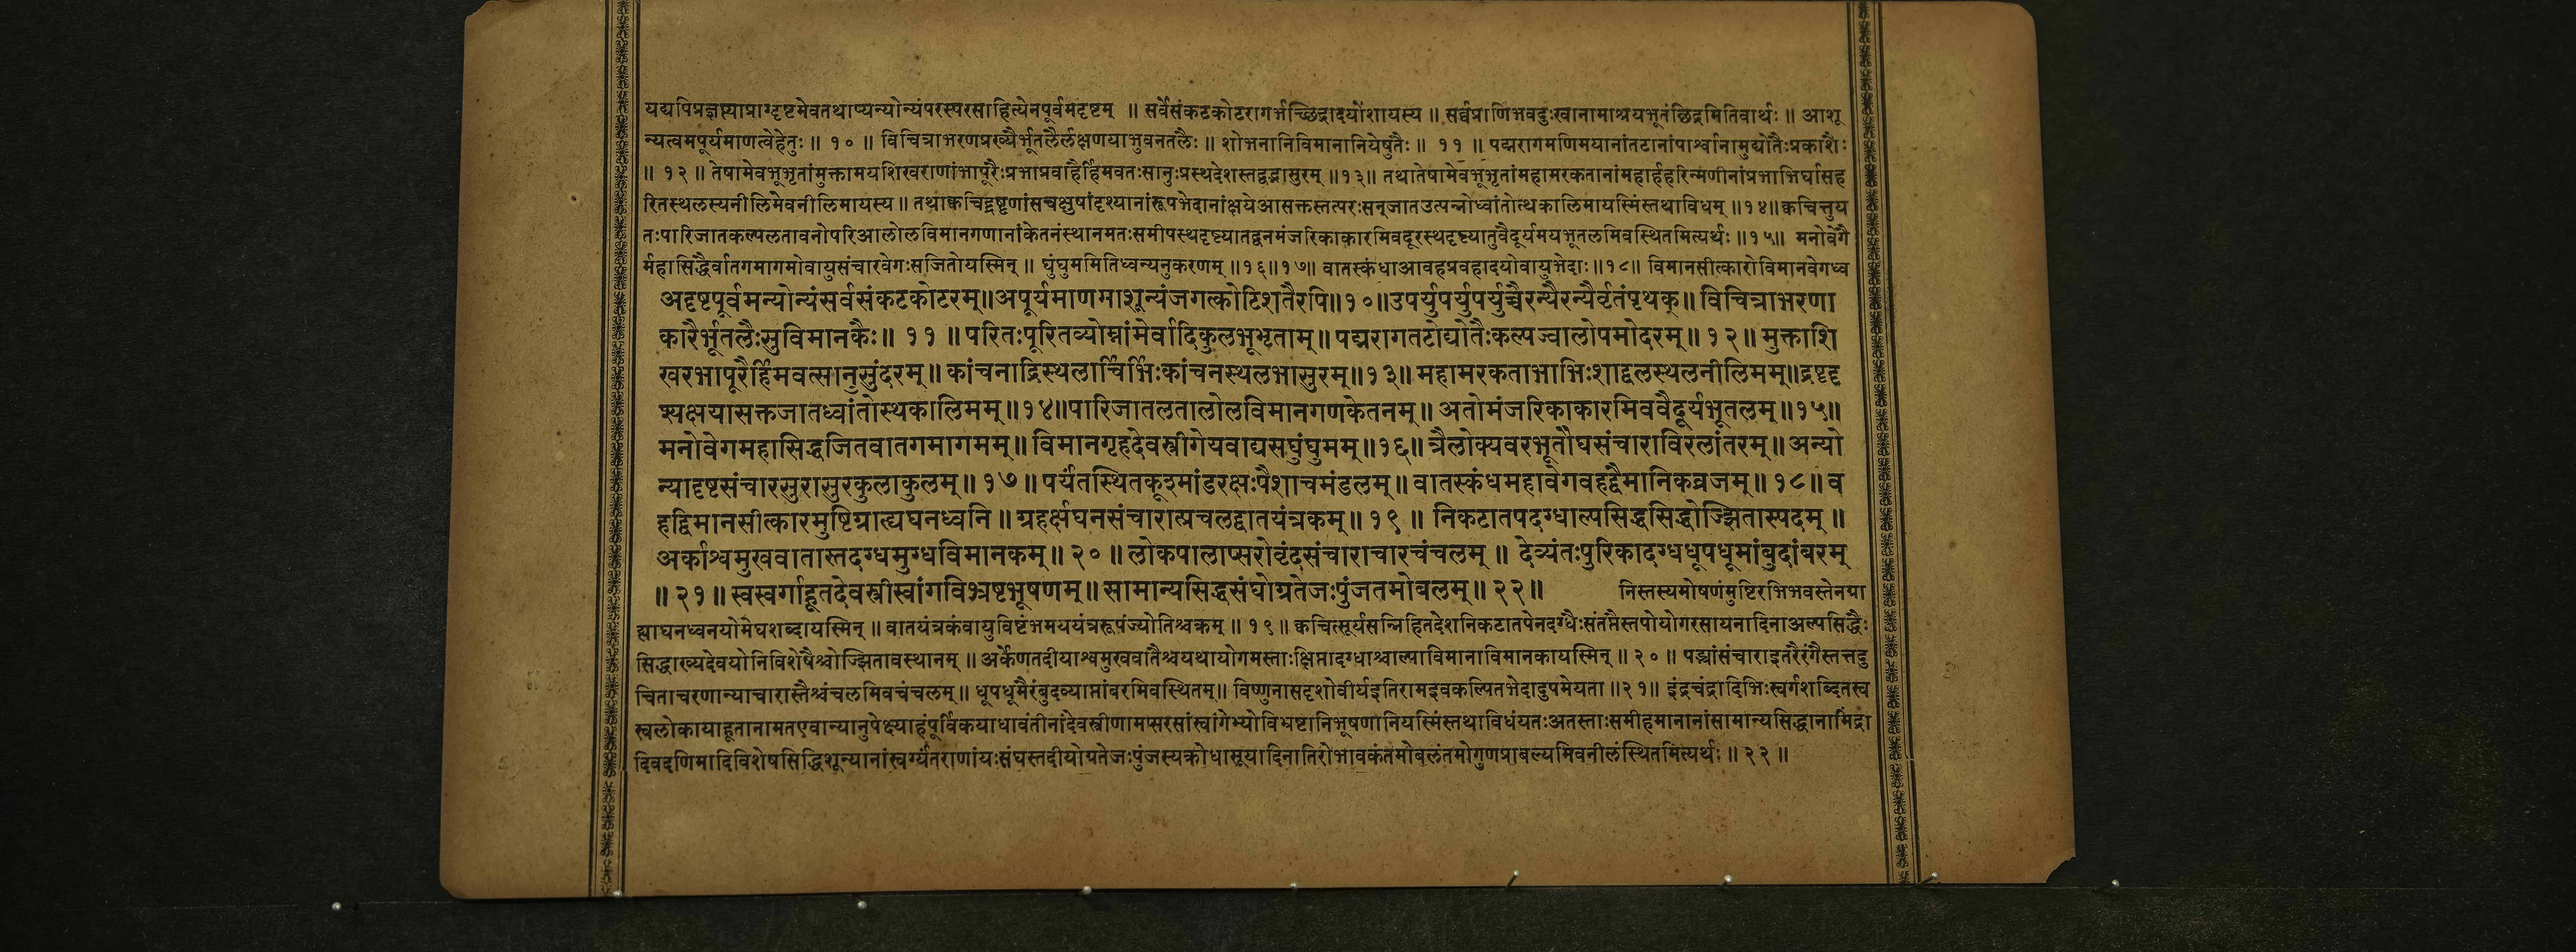 यद्यपिप्रज्ञप्त्याप्राग्दृष्टमेवतथाप्यन्योन्यंपरस्परसाहित्येनपूर्वमदृष्टम् ॥ सर्वेसंकटकोटरागर्भच्छिद्रादयोंशायस्य ॥ सर्वप्राणिभवदुःखानामाश्रयभूतंछिद्रमितिवार्थः ॥ आशू
न्यत्वमपूर्यमाणत्वेहेतुः ॥ १० ॥ विचित्राभरणप्रख्यैर्भूतलैर्लक्षणयाभुवनतलैः ॥ शोभनानिविमानानियेषुतैः ॥ ११ ॥ पद्मरागमणिमयानांतटानांपार्श्वानामुद्योतैःप्रकाशैः
॥ १२ ॥ तेषामेवभूभृतांमुक्तामयशिखराणांभापूरैःप्रभाप्रवाहैर्हिमवतःसानुःप्रस्थदेशस्तद्वद्भासुरम् ॥१३॥ तथातेषामेवभूभृतांमहामरकतानांमहार्हहरिन्मणीनांप्रभाभिर्घासह
रितस्थलस्यनीलिमेवनीलिमायस्य ॥ तथाक्वचिद्द्रष्टॄणांसचक्षुषांदृश्यानांरूपभेदानांक्षयेआसक्तस्तत्परःसन्जातउत्पन्नोध्वांतोत्थकालिमायस्मिंस्तथाविधम् ॥१४॥ क्वचित्तुय
तःपारिजातकल्पलतावनोपरिआलोलविमानगणानांकेतनंस्थानमतःसमीपस्थदृष्ट्यातद्वनमंजरिकाकारमिवदूरस्थदृष्ट्यातुवैदूर्यमयभूतलमिवस्थितमित्यर्थः ॥१५॥ मनोवेगै
र्महासिद्धैर्वातगमागमोवायुसंचारवेगःसजितोयस्मिन् ॥ घुंघुममितिध्वन्यनुकरणम् ॥१६॥१७॥ वातस्कंधाआवहप्रवहादयोवायुभेदाः ॥१८॥ विमानसीत्कारोविमानवेगध्व
अदृष्टपूर्वमन्योन्यंसर्वसंकटकोटरम्॥अपूर्यमाणमाशून्यंजगत्कोटिशतैरपि॥१०॥उपर्युपर्युपर्युच्चैरन्यैरन्यैर्वृतंपृथक्॥ विचित्राभरणा
कारैर्भूतलैःसुविमानकैः॥ ११ ॥ परितःपूरितव्योम्नांमेर्वादिकुलभूभृताम्॥ पद्मरागतटोद्योतैःकल्पज्वालोपमोदरम्॥ १२॥ मुक्ताशि
खरभापूरैर्हिमवत्सानुसुंदरम्॥ कांचनाद्रिस्थलार्चिर्भिःकांचनस्थलभासुरम्॥१३॥ महामरकताभाभिःशाद्वलस्थलनीलिमम्॥द्रष्टृदृ
श्यक्षयासक्तजातध्वांतोत्थकालिमम्॥१४॥पारिजातलतालोलविमानगणकेतनम्॥ अतोमंजरिकाकारमिववैदूर्यभूतलम्॥१५॥
मनोवेगमहासिद्धजितवातगमागमम्॥ विमानगृहदेवस्त्रीगेयवाद्यसघुंघुमम्॥१६॥ त्रैलोक्यवरभूतौघसंचाराविरलांतरम्॥ अन्यो
न्यादृष्टसंचारसुरासुरकुलाकुलम्॥ १७ ॥ पर्यंतस्थितकूश्मांडरक्षःपैशाचमंडलम्॥ वातस्कंधमहावेगवहद्वैमानिकव्रजम्॥ १८॥ व
हद्विमानसीत्कारमुष्टिग्राह्यघनध्वनि ॥ ग्रहर्क्षघनसंचारात्प्रचलद्वातयंत्रकम्॥ १९ ॥ निकटातपदग्धाल्पसिद्धसिद्धोज्झितास्पदम् ॥
अर्काश्वमुखवातास्तदग्धमुग्धविमानकम्॥ २० ॥ लोकपालाप्सरोवृंदसंचाराचारचंचलम् ॥ देव्यंतःपुरिकादग्धधूपधूमांबुदांबरम्
॥ २१ ॥ स्वस्वर्गाहूतदेवस्त्रीस्वांगविभ्रष्टभूषणम्॥ सामान्यसिद्धसंघोग्रतेजःपुंजतमोबलम्॥ २२॥ निस्तस्यमोषणंमुष्टिरभिभवस्तेनग्रा
ह्याघनध्वनयोमेघशब्दायस्मिन् ॥ वातयंत्रकंवायुविष्टंभमययंत्ररूपंज्योतिश्चक्रम् ॥ १९ ॥ क्वचित्सूर्यसन्निहितदेशनिकटातपेनदग्धैःसंतप्तैस्तपोयोगरसायनादिनाअल्पसिद्धैः
सिद्धाख्यदेवयोनिविशेषैश्चोज्झितावस्थानम् ॥ अर्केणतदीयाश्वमुखवातैश्चयथायोगमस्ताःक्षिप्तादग्धाश्चाल्पाविमानाविमानकायस्मिन् ॥ २० ॥ पद्भ्यांसंचाराइतरैरंगैस्तत्तदु
चिताचरणान्याचारास्तैश्चंचलमिवचंचलम् ॥ धूपधूमैरंबुदव्याप्तांबरमिवस्थितम्॥ विष्णुनासदृशोवीर्यइतिरामइवकल्पितभेदादुपमेयता ॥२१॥ इंद्रचंद्रादिभिःस्वर्गशब्दितस्व
स्वलोकायाहूतानामतएवान्यानुपेक्ष्याहंपूर्विकयाधावंतीनांदेवस्त्रीणामप्सरसांस्वांगेभ्योविभ्रष्टानिभूषणानियस्मिंस्तथाविधंयतःअतस्ताःसमीहमानानांसामान्यसिद्धानामिंद्रा
दिवदणिमादिविशेषसिद्धिशून्यानांस्वर्ग्यंतराणांयःसंघस्तदीयोग्रतेजःपुंजस्यक्रोधासूयादिनातिरोभावकंतमोबलंतमोगुणप्राबल्यमिवनीलंस्थितमित्यर्थः ॥ २२ ॥